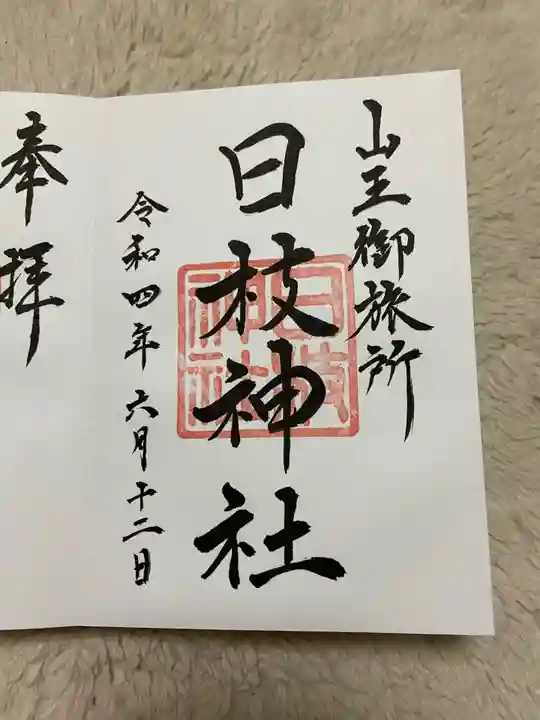 山王御旅所
日枝神社
日枝神社
令和四年六月十二日
奉拝